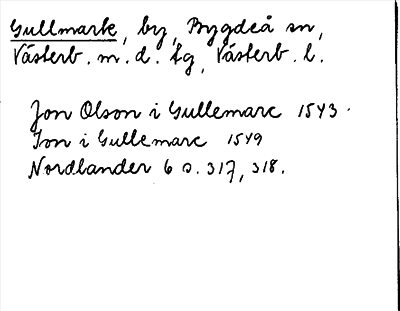 Gullmark, by, Bygdeå sn,
Västerb. m. d. tg, Västerb. l.
Jon Olson i Gullemarc 1543.
Ion i Gullemarc 1549
Nordlander 6 s. 317, 318.